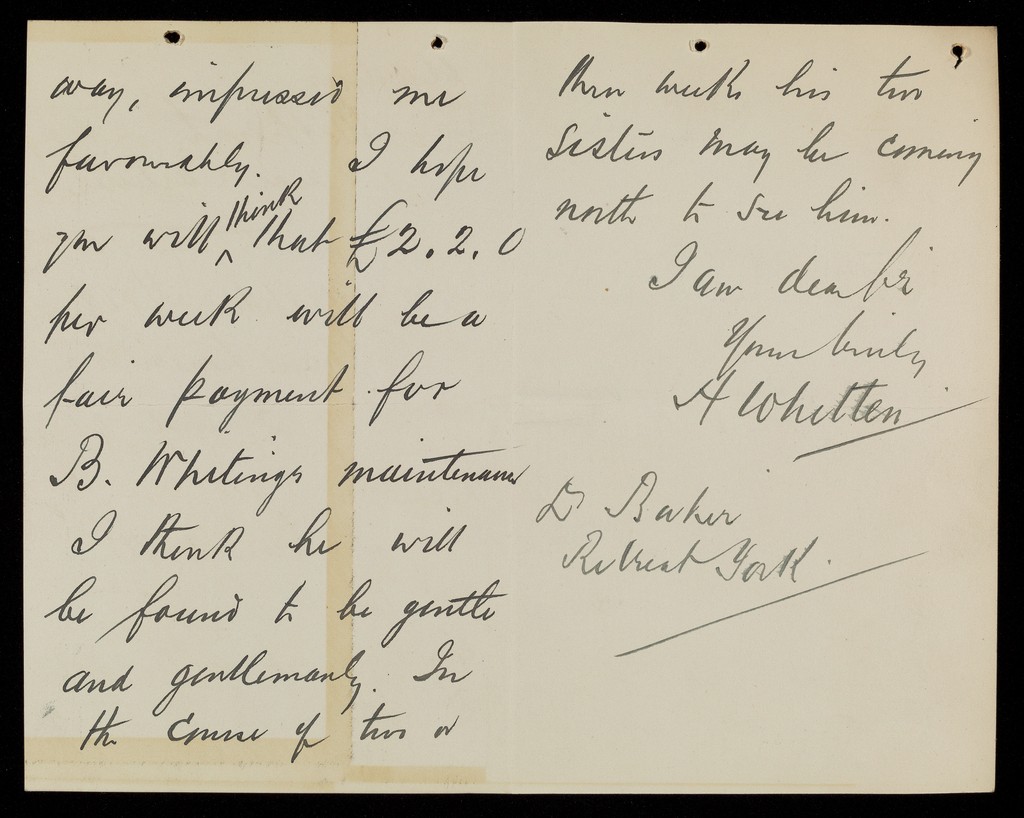 way, impressed me
favourably. I hope
you will think that £2.2.0
per week will be a
fair payment for
B. Whitings maintenance
I think he will
be found to be gentle
and gentlemanly. In
the course of two or
three weeks his two
sisters may be coming
north to see him.
I am dear Sir
Yours truly
A Whitten
Dr Baker
Retreat York.